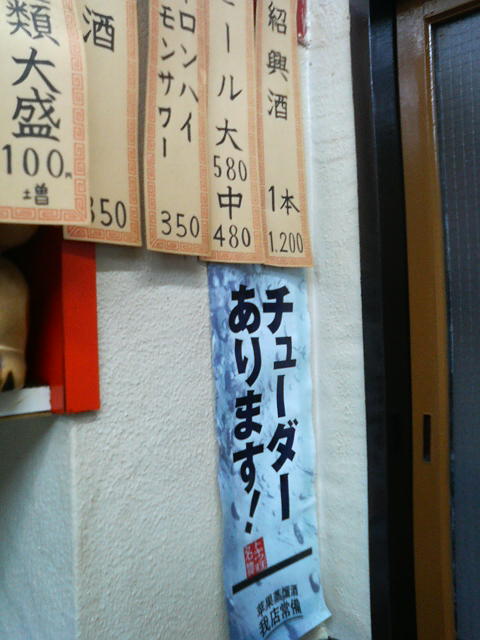 紹興酒
1本
1.200
ール大
580
中
480
ロンハイ
モンサワー
350
酒
350
類大盛
100円
増
チューダー
あります!
苹果蒸溜酒
我店常備